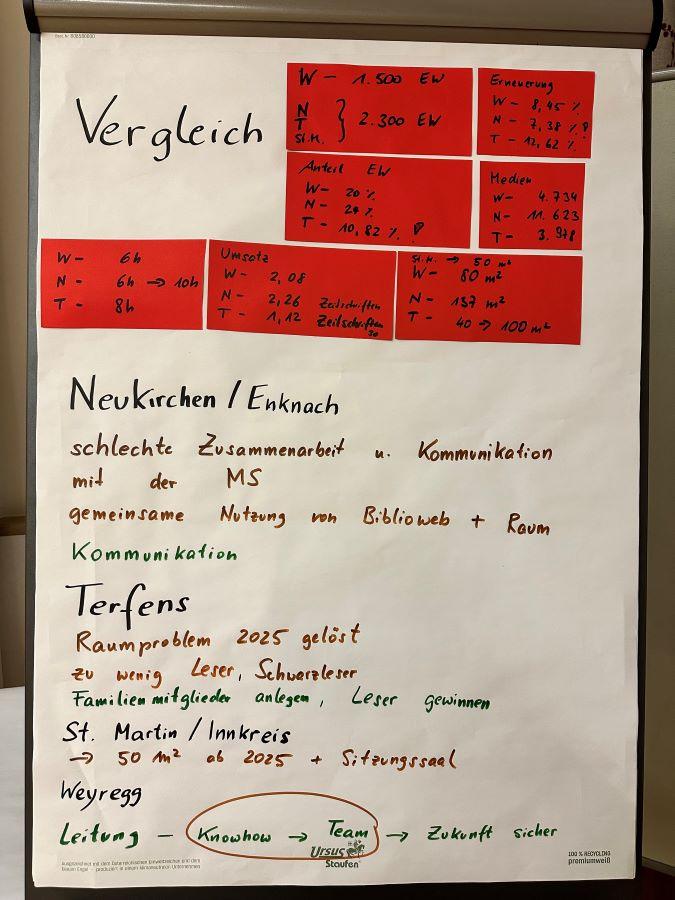 Vergleich
W - 1.500 EW
N
T } 2.300 EW
St.M.
Erneuerung
W - 8,45 %
N - 7,38 % ?
T - 12,62 %
Anteil EW
W - 20 %
N - 24 %
T - 10,82 % !
Medien
W - 4.734
N - 11.623
T - 3.978
W - 6h
N - 6h → 10h
T - 8h
Umsatz
W - 2,08
N - 2,26 Zeitschriften
T - 1,12 Zeitschriften
30
St.M. → 50 m²
W - 80 m²
N - 137 m²
T - 40 → 100 m²
Neukirchen / Enknach
schlechte Zusammenarbeit u. Kommunikation
mit der MS
gemeinsame Nutzung von Biblioweb + Raum
Kommunikation
Terfens
Raumproblem 2025 gelöst
zu wenig Leser, Schwarzleser
Familienmitglieder anlegen, Leser gewinnen
St. Martin / Innkreis
→ 50 m² ab 2025 + Sitzungssaal
Weyregg
Leitung - Knowhow → Team → Zukunft sicher
Ursus
Staufen
100 % RECYCLING
premiumweiß